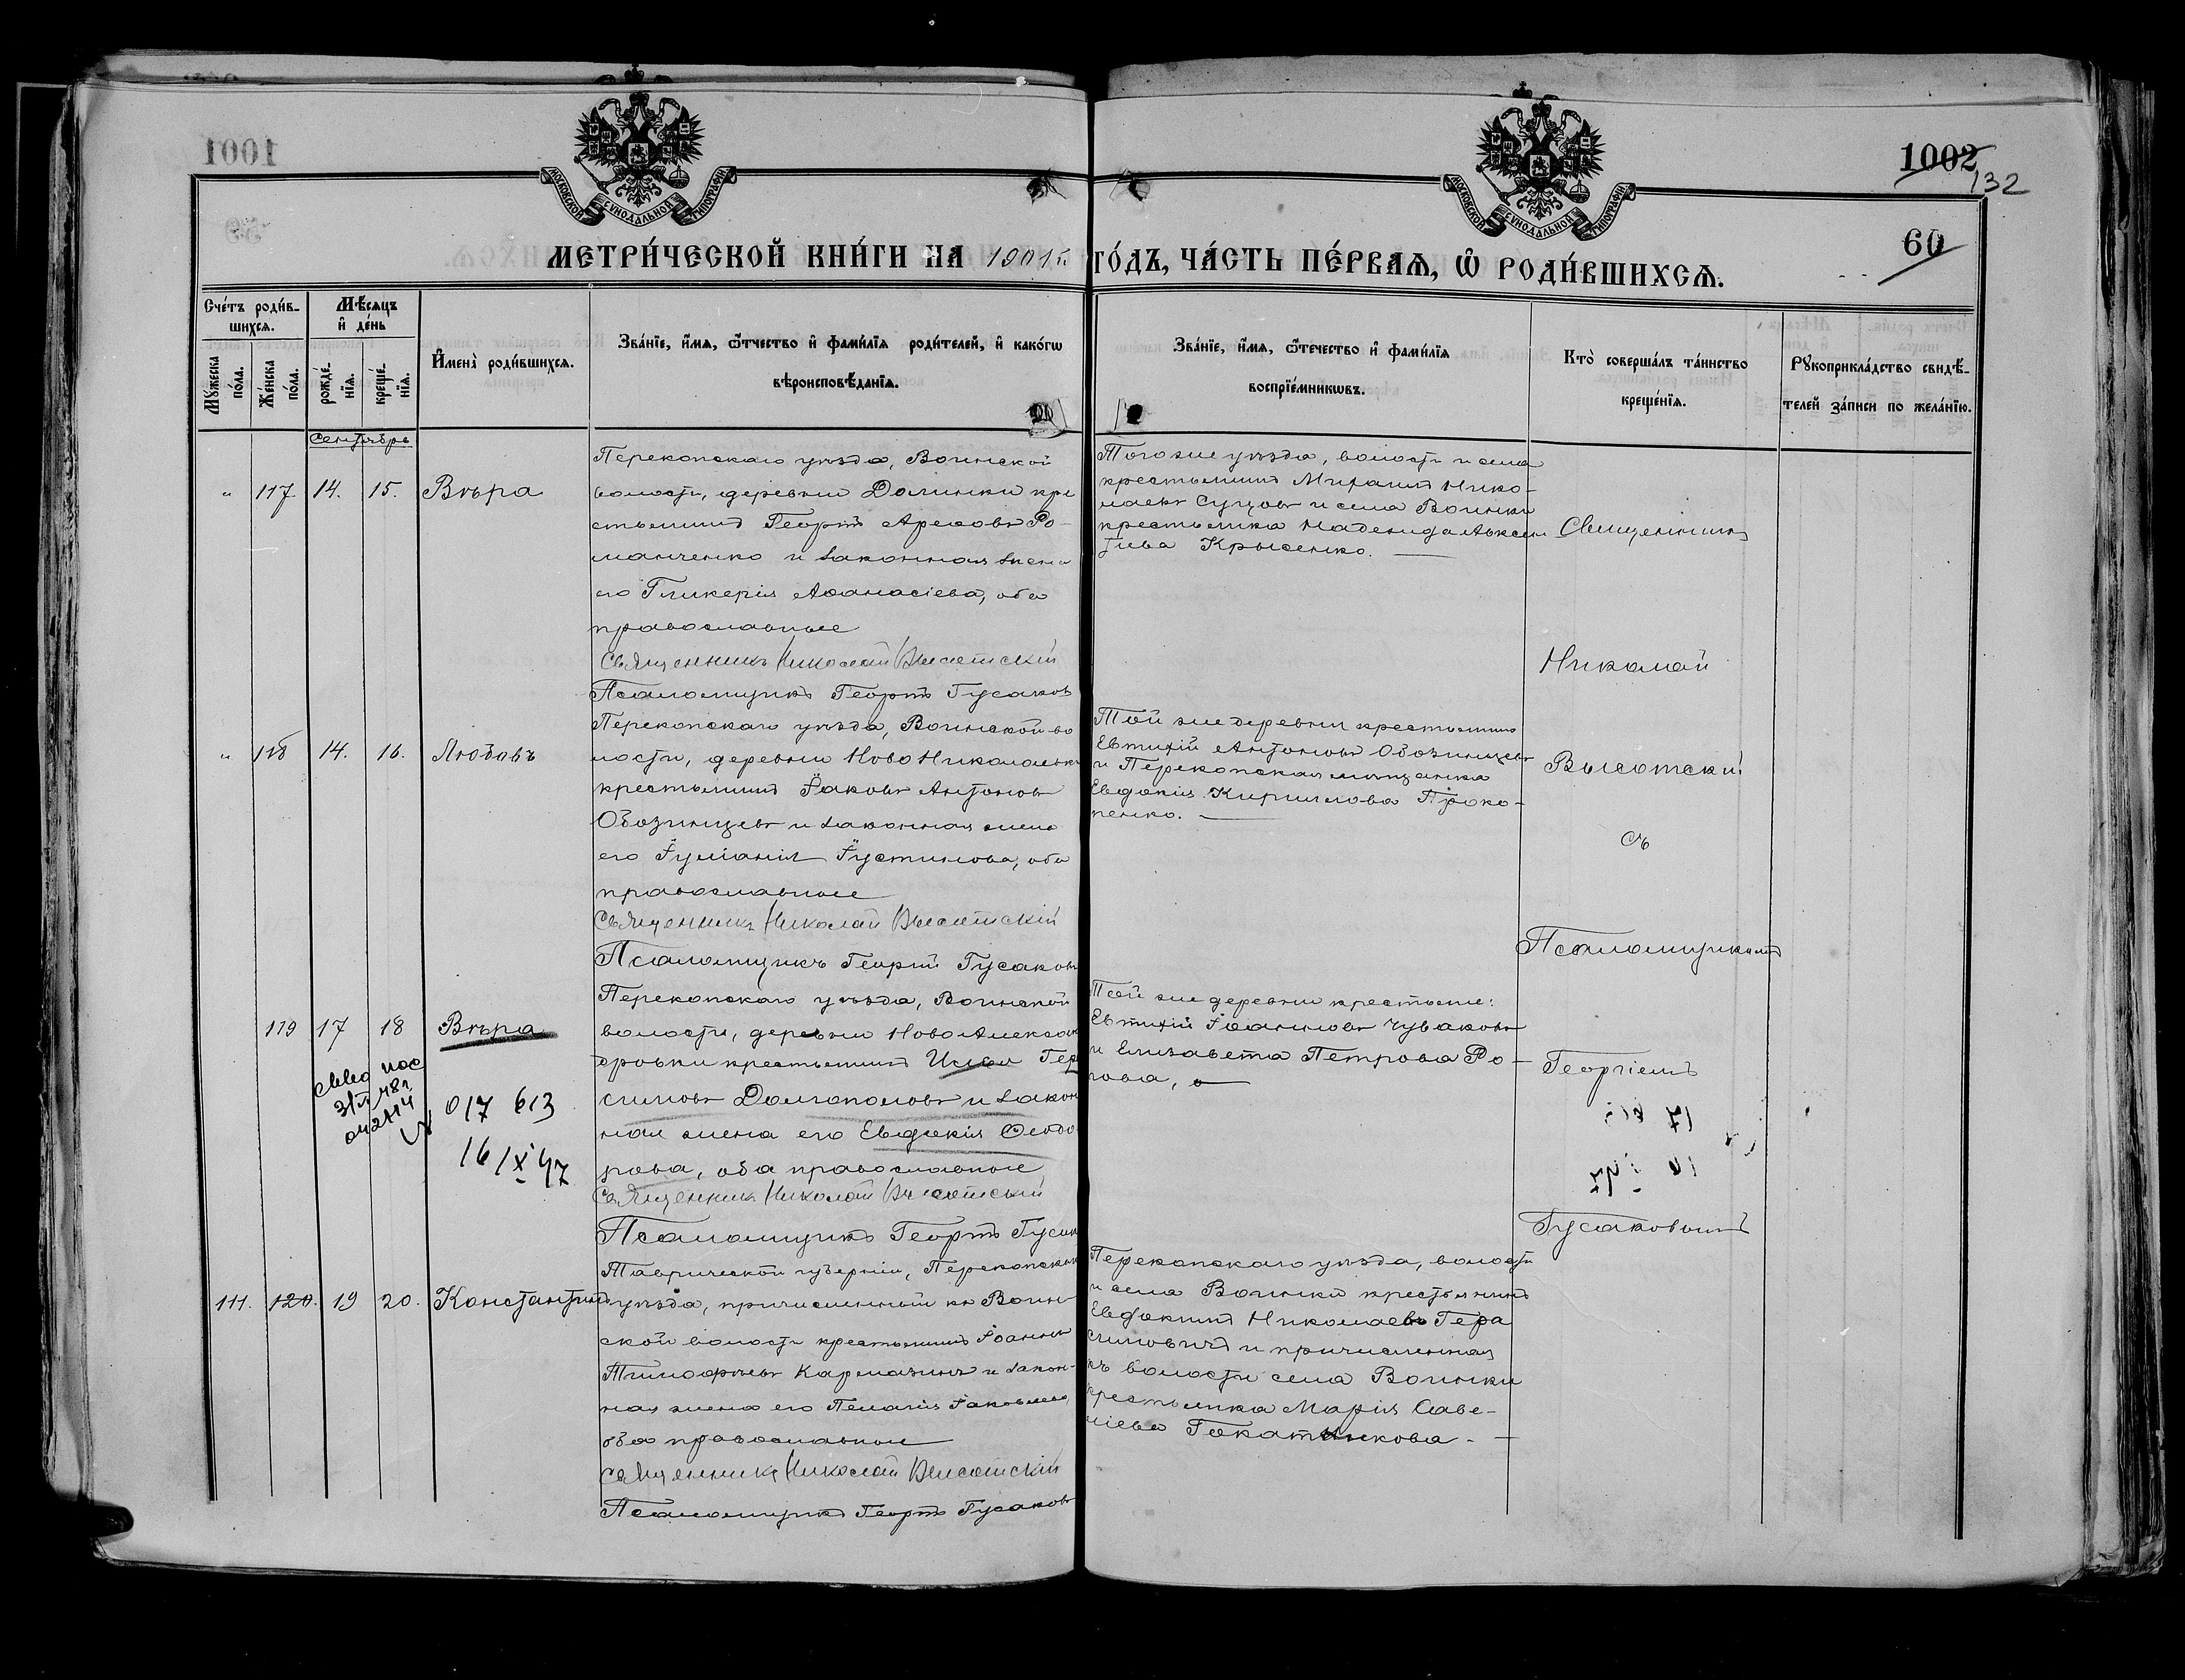 1001
1002
132
60
МОСКОВСКОЙ СѴНОДАЛЬНОЙ ТИПОГРАФІИ
МОСКОВСКОЙ СѴНОДАЛЬНОЙ ТИПОГРАФІИ
МЕТРИ́ЧЕСКОЙ КНИ́ГИ НА 1901 го́дъ, ЧА́СТЬ ПЕ́РВАѦ, Ѡ҆ РОДИ́ВШИХСѦ.
Сче́тъ роди́в-
шихсѧ.
Мꙋжеска по́ла.
Же́нска по́ла.
Мѣ́сѧцъ
и҆ де́нь
рожде́нїѧ.
креще́нїѧ.
И҆мена̀ роди́вшихсѧ.
Зва́нїе, и҆́мѧ, ѻ҆́тчество и҆ фами́лїѧ роди́телей, и҆ како́гѡ
вѣроисповѣ́данїѧ.
Зва́нїе, и҆́мѧ, ѻ҆те́чество и҆ фами́лїѧ
воспрїе́мникѡвъ.
Кто̀ соверша́лъ та́инство
креще́нїѧ.
Рꙋкоприкла́дство свидѣ́-
телей за́писи по жела́нїю.
Сентябрь
" 117 14. 15. Вѣра
Перекопскаго уѣзда, Воинской
волости, деревни Долинки кре
стьянинъ Георгій Арефовъ Ро-
манченко и законная жена
его Гликерія Аѳанасіева, оба
православные
Священникъ Николай Высотскій
Псаломщикъ Георгій Гусаковъ
Того же уѣзда, волости и села
крестьянинъ Михаилъ Нико-
лаевъ и села Воинки
крестьянка Надежда
Крысенко.
" 118 14. 16. Любовь
Перекопскаго уѣзда, Воинской во
лости, деревни Ново Николаевки
крестьянинъ Іаковъ Антоновъ
Обозинцевъ и законная жена
его Іуліанія Іустинова, оба
православные
Священникъ Николай Высотскій
Псаломщикъ Георгій Гусаковъ
Той же деревни крестьянинъ
Евтихій Антоновъ Обозинцевъ
и Перекопская мѣщанка
Евдокія Кириллова Проко-
пенко.
119 17 18 Вѣра
Перекопскаго уѣзда, Воинской
волости, деревни Ново Алексан
дровки крестьянинъ Гера
симовъ Долгополовъ и закон
ная жена его Евдокія Ѳеодо
рова, оба православные
Священникъ Николай Высотскій
Псаломщикъ Георгій Гусаков
Той же деревни крестьяне:
Евтихій Іоанновъ Чуваковъ
и Елизавета Петрова Ро-
гова,
017 613
16/X 47
111. 120. 19 20. Константинъ
Таврической губерніи, Перекопскаго
уѣзда, причисленный къ Воин-
ской волости крестьянинъ Іоаннъ
Тимоѳеевъ Кармазинъ и закон-
ная жена его Пелагія Іаковлева,
оба православные
Священникъ Николай Высотскій
Псаломщикъ Георгій Гусаковъ
Перекопскаго уѣзда, волости
и села Воинки крестьянинъ
Евдокимъ Николаевъ Гера
симовичъ и причисленная
къ волости села Воинки
крестьянка Марія Саве-
ліева
Священникъ
Николай
Высотскій
съ
Псаломщикомъ
Георгіемъ
Гусаковымъ